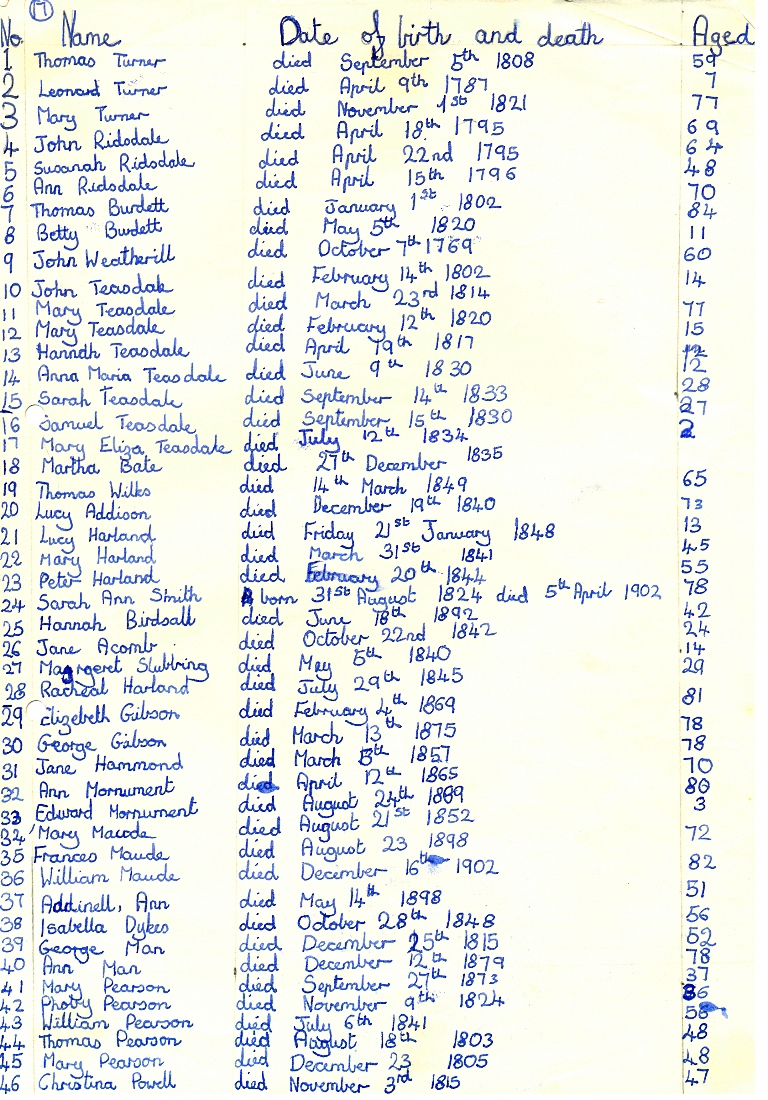 17
No Name Date of birth and death Aged
1 Thomas Turner died September 5th 1808 59
2 Leonard Turner died April 9th 1787 7
3 Mary Turner died November 1st 1821 77
4 John Ridsdale died April 18th 1795 69
5 Susanah Ridsdale died April 22nd 1795 64
6 Ann Ridsdale died April 15th 1796 48
7 Thomas Burdett died January 1st 1802 70
8 Betty Burdett died May 5th 1820 84
9 John Weatherill died October 7th 1769 11
10 John Teasdale died February 14th 1802 60
11 Mary Teasdale died March 23rd 1814 14
12 Mary Teasdale died February 12th 1820 77
13 Hannah Teasdale died April 19th 1817 15
14 Anna Maria Teasdale died June 9th 1830 12
15 Sarah Teasdale died September 14th 1833 12
16 Samuel Teasdale died September 15th 1830 28
17 Mary Eliza Teasdale died July 12th 1834 27
18 Martha Bate died 27th December 1835 2
19 Thomas Wilks died 14th March 1849 65
20 Lucy Addison died December 19th 1840 73
21 Lucy Harland died Friday 21st January 1848 13
22 Mary Harland died March 31st 1841 45
23 Peter Harland died February 20th 1844 55
24 Sarah Ann Smith born 31st August 1824 died 5th April 1902 78
25 Hannah Birdsall died June 18th 1892 42
26 Jane Acomb died October 22nd 1842 24
27 Margeret Slubbring died May 5th 1840 14
28 Racheal Harland died July 29th 1845 29
29 Elizebeth Gibson died February 4th 1869 81
30 George Gibson died March 13th 1875 78
31 Jane Hammond died March 5th 1857 78
32 Ann Mornument died April 12th 1865 70
33 Edward Mornument died August 24th 1869 80
34 Mary Maude died August 21st 1852 3
35 Frances Maude died August 23 1898 72
36 William Maude died December 16th 1902 82
37 Addinell, Ann died May 14th 1898 51
38 Isabella Dykes died October 28th 1848 56
39 George Man died December 25th 1815 52
40 Ann Man died December 12th 1879 78
41 Mary Pearson died September 27th 1873 37
42 Phoby Pearson died November 9th 1824 36
43 William Pearson died July 6th 1841 58
44 Thomas Pearson died August 18th 1803 48
45 Mary Pearson died December 23 1805 48
46 Christina Powell died November 3rd 1815 47